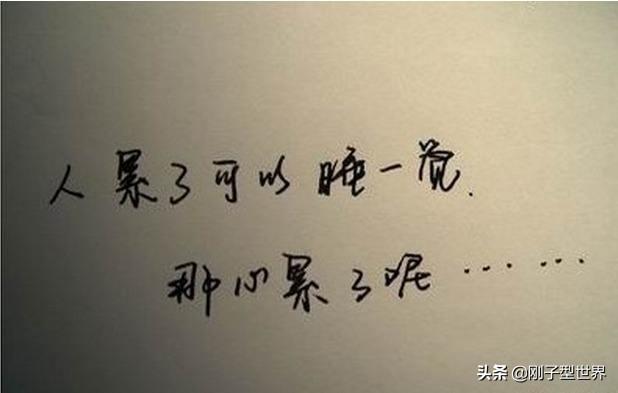 人累了可以睡一觉.
那心累了呢……
头条 @刚子型世界